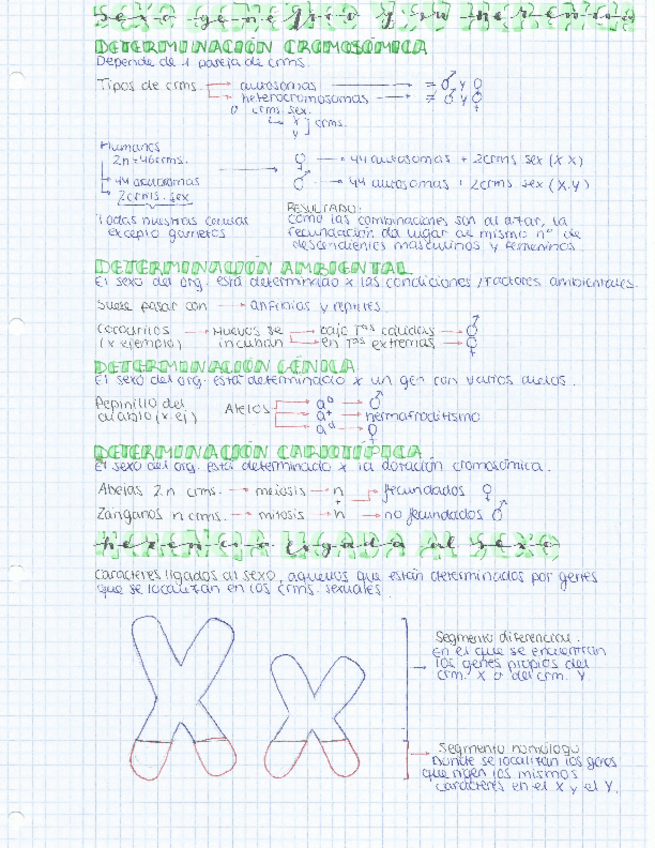 sexo genético y su herencia
DETERMINACIÓN CROMOSÓMICA
Depende de 1 pareja de crms.
Tipos de crms. → autosomas → = ♂ y ♀
→ heterocromosomas → ≠ ♂ y ♀
o crms. sex.
↳ X ] crms.
Y
Humanos
2n=46crms.
→ 44 autosomas
→ 2crms. sex
→ ♀ → 44 autosomas + 2crms sex (XX)
♂ → 44 autosomas + 2crms sex (X.Y)
Todas nuestras células
excepto gametos
RESULTADO:
Como las combinaciones son al azar, la
fecundación da lugar al mismo nº de
descendientes masculinos y femeninos
DETERMINACIÓN AMBIENTAL
El sexo del org. está determinado x las condiciones /factores ambientales.
Suele pasar con → anfibios y reptiles.
Cocodrilos → Huevos se → bajo Tªs cálidas → ♂
(x ejemplo) incuban → en Tªs extremas → ♀
DETERMINACIÓN GÉNICA
El sexo del org. está determinado x un gen con varios alelos.
Pepinillo del Alelos → aᴰ → ♂
diablo (x ej) → a⁺ → hermafroditismo
→ aᵈ → ♀
DETERMINACIÓN CARIOTÍPICA
El sexo del org. está determinado x la dotación cromosómica.
Abejas 2n crms. → meiosis → n → fecundados ♀
+
Zánganos n crms. → mitosis → n → no fecundados ♂
herencia ligada al sexo
Caracteres ligados al sexo, aquellos que están determinados por genes
que se localizan en los crms. sexuales.
Segmento diferencial.
En el que se encuentran
los genes propios del
crm. X o del crm. Y.
Segmento homólogo
Donde se localizan los genes
que rigen los mismos
caracteres en el X y el Y.